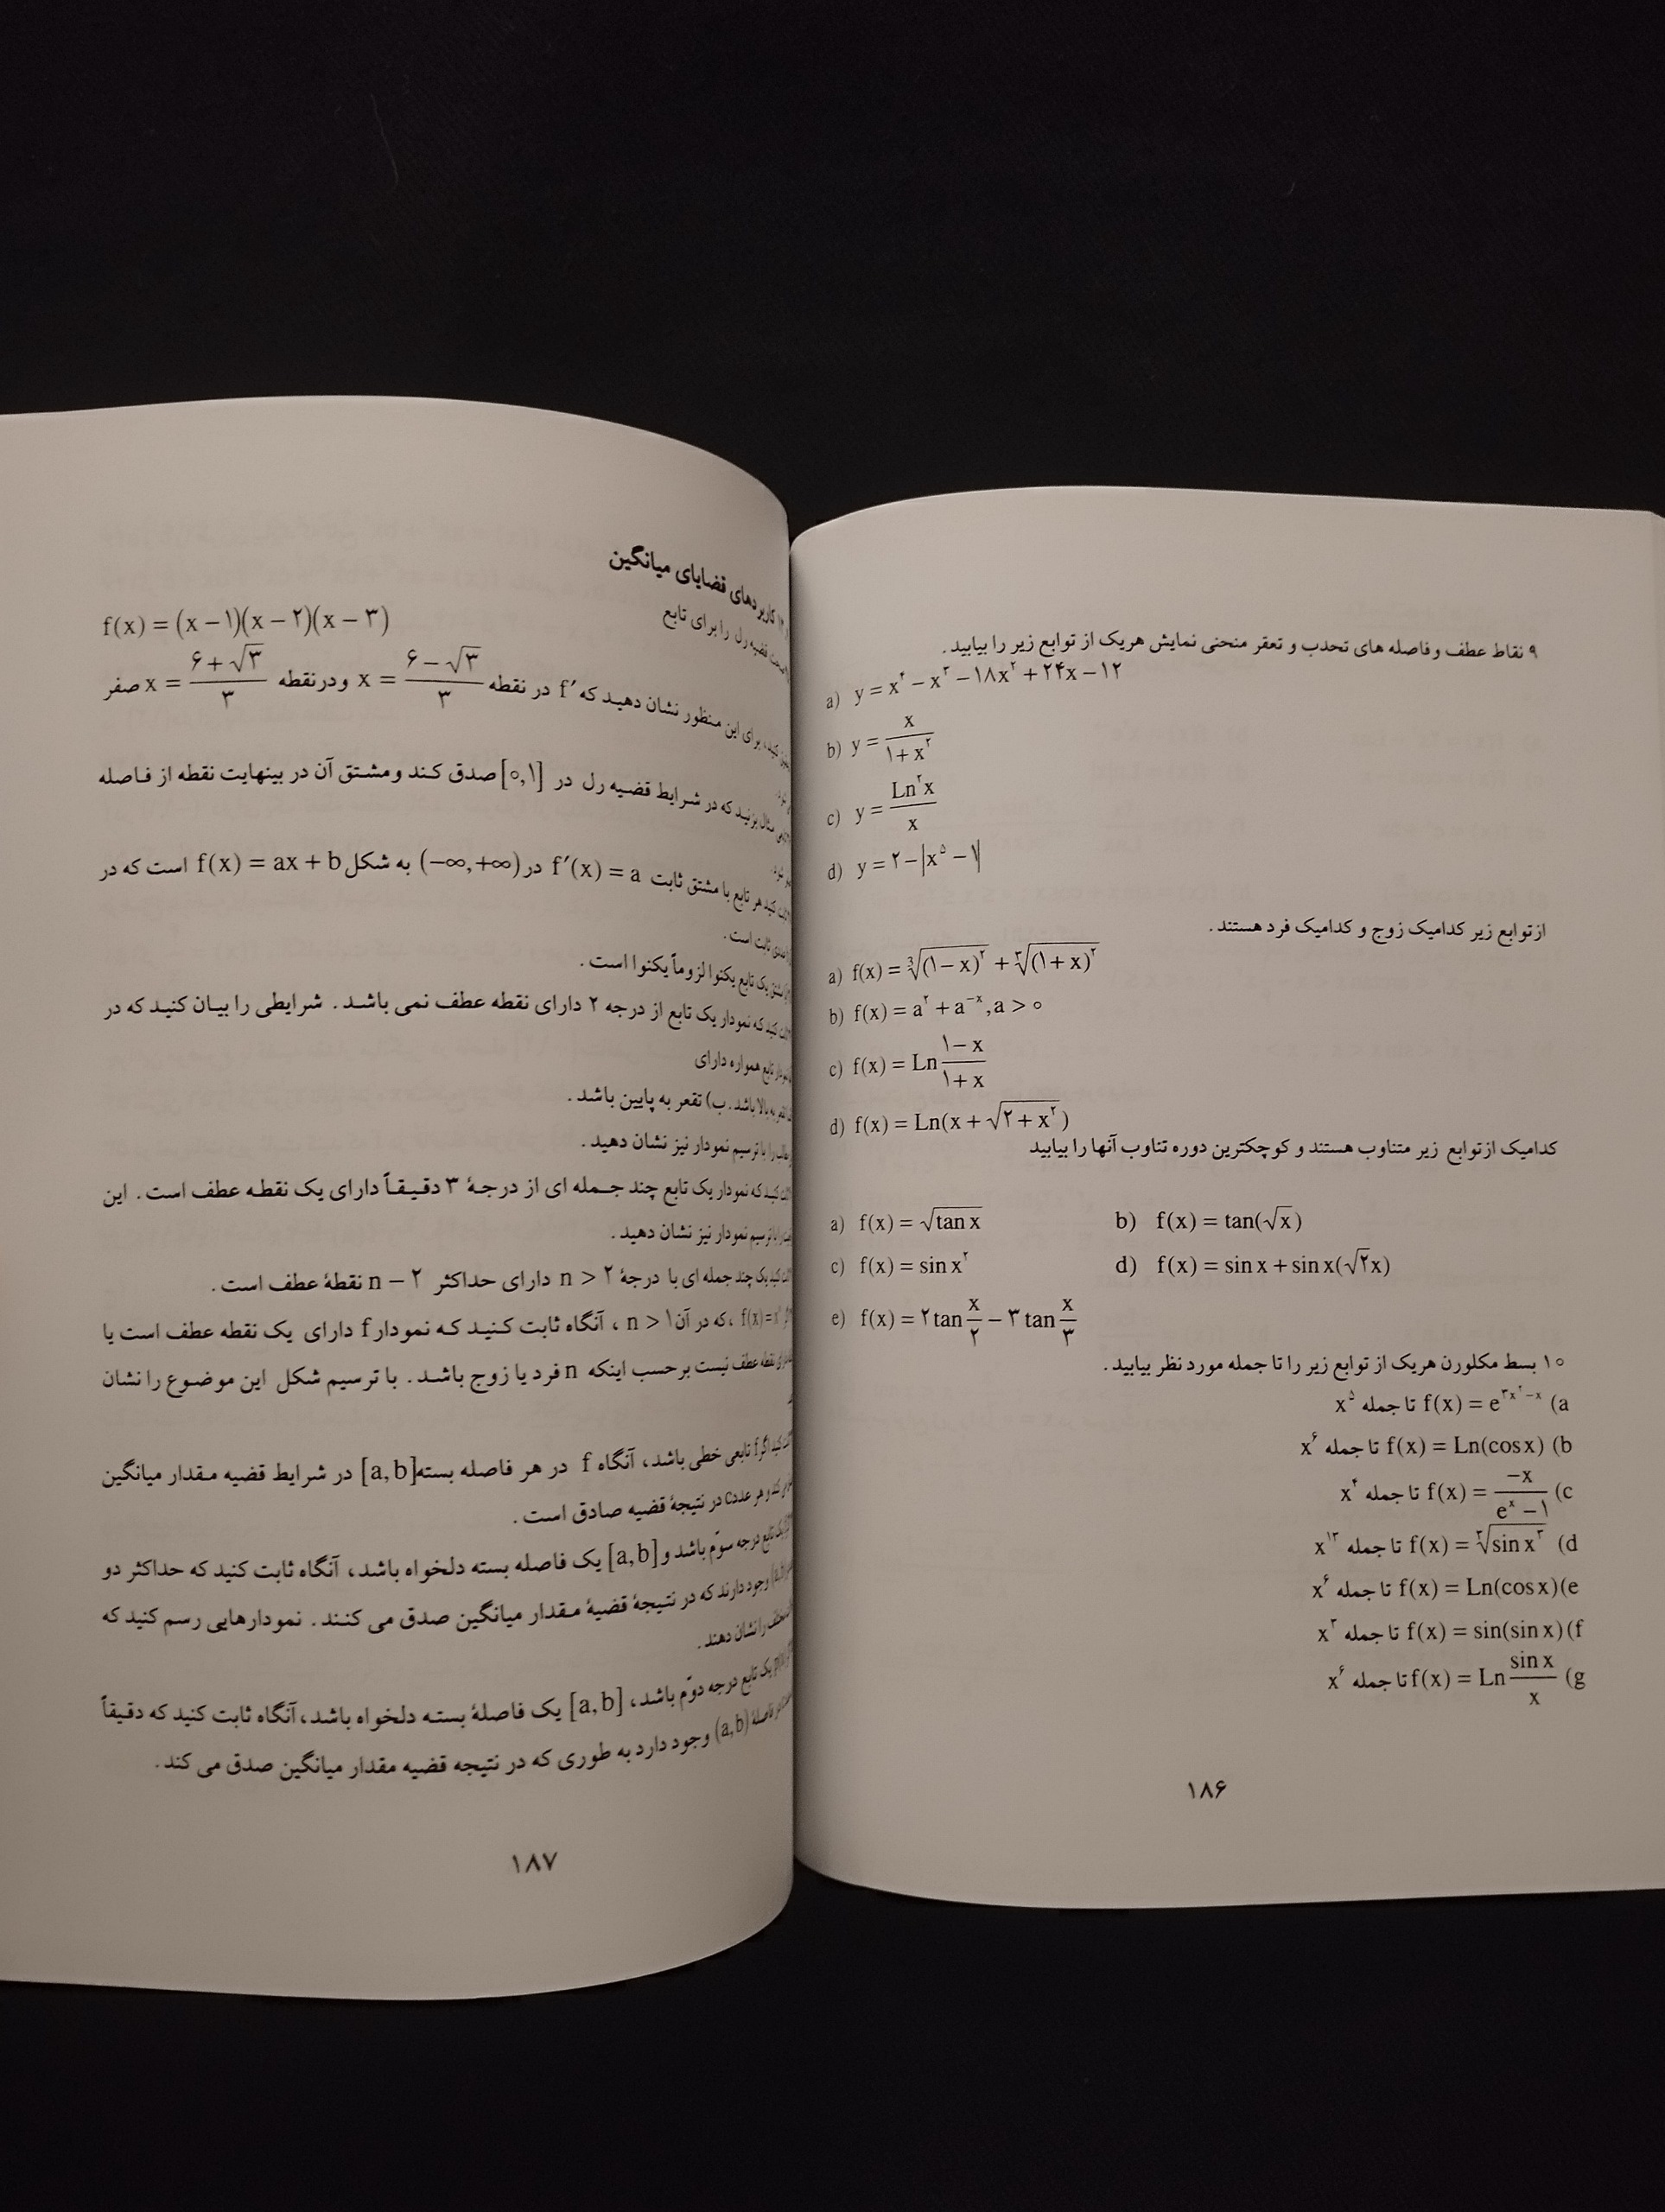 ۹ نقاط عطف و فاصله های تحدب و تعقر منحنی نمایش هریک از توابع زیر را بیابید.
a) y = x⁴ − x³ − ۱۸x² + ۲۴x − ۱۲
b) y = x / (۱ + x²)
c) y = Ln²x / x
d) y = ۲ − |x⁵ − ۱|
ازتوابع زیر کدامیک زوج و کدامیک فرد هستند.
a) f(x) = ∛(۱ − x)² + ∛(۱ + x)²
b) f(x) = a² + a⁻ˣ, a > ۰
c) f(x) = Ln (۱ − x)/(۱ + x)
d) f(x) = Ln(x + √(۲ + x²))
کدامیک ازتوابع زیر متناوب هستند و کوچکترین دوره تناوب آنها را بیابید
a) f(x) = √tan x b) f(x) = tan(√x)
c) f(x) = sin x² d) f(x) = sin x + sin x(√۲x)
e) f(x) = ۲ tan x/۲ − ۳ tan x/۳
۱۰ بسط مکلورن هریک از توابع زیر را تا جمله مورد نظر بیابید.
a) f(x) = e^(۳x²−x) تا جمله x⁵
b) f(x) = Ln(cos x) تا جمله x⁶
c) f(x) = −x / (eˣ − ۱) تا جمله x⁴
d) f(x) = ∛sin x³ تا جمله x¹³
e) f(x) = Ln(cos x) تا جمله x⁶
f) f(x) = sin(sin x) تا جمله x³
g) f(x) = Ln sin x / x تا جمله x⁶
۱۸۶
کاربردهای قضایای میانگین
قضیه رل را برای تابع f(x) = (x − ۱)(x − ۲)(x − ۳)
کنید، برای این منظور نشان دهید که f′ در نقطه x = (۶ − √۳)/۳ ودرنقطه x = (۶ + √۳)/۳ صفر
مثال بزنید که در شرایط قضیه رل در [۰,۱] صدق کند ومشتق آن در بینهایت نقطه از فاصله
کنید هر تابع با مشتق ثابت f′(x) = a در (−∞,+∞) به شکل f(x) = ax + b است که در
عددی ثابت است.
مشتق یک تابع یکنوا لزوماً یکنوا است.
کنید که نمودار یک تابع از درجه ۲ دارای نقطه عطف نمی باشد. شرایطی را بیان کنید که در
نمودار تابع همواره دارای
تقعر به بالا باشد. ب) تقعر به پایین باشد.
را با ترسیم نمودار نیز نشان دهید.
کنید که نمودار یک تابع چند جمله ای از درجهٔ ۳ دقیقاً دارای یک نقطه عطف است. این
را با ترسیم نمودار نیز نشان دهید.
کنید یک چند جمله ای با درجهٔ n > ۲ دارای حداکثر n − ۲ نقطهٔ عطف است.
f(x) = xⁿ، که در آن n > ۱، آنگاه ثابت کنید که نمودار f دارای یک نقطه عطف است یا
نقطه عطف نیست برحسب اینکه n فرد یا زوج باشد. با ترسیم شکل این موضوع را نشان
کنید اگر f تابعی خطی باشد، آنگاه f در هر فاصله بسته [a,b] در شرایط قضیه مقدار میانگین
و هر عدد c در نتیجهٔ قضیه صادق است.
یک تابع درجه سوّم باشد و [a,b] یک فاصله بسته دلخواه باشد، آنگاه ثابت کنید که حداکثر دو
وجود دارند که در نتیجهٔ قضیهٔ مقدار میانگین صدق می کنند. نمودارهایی رسم کنید که
را نشان دهند.
یک تابع درجه دوّم باشد، [a,b] یک فاصلهٔ بسته دلخواه باشد، آنگاه ثابت کنید که دقیقاً
فاصلهٔ (a,b) وجود دارد به طوری که در نتیجه قضیه مقدار میانگین صدق می کند.
۱۸۷